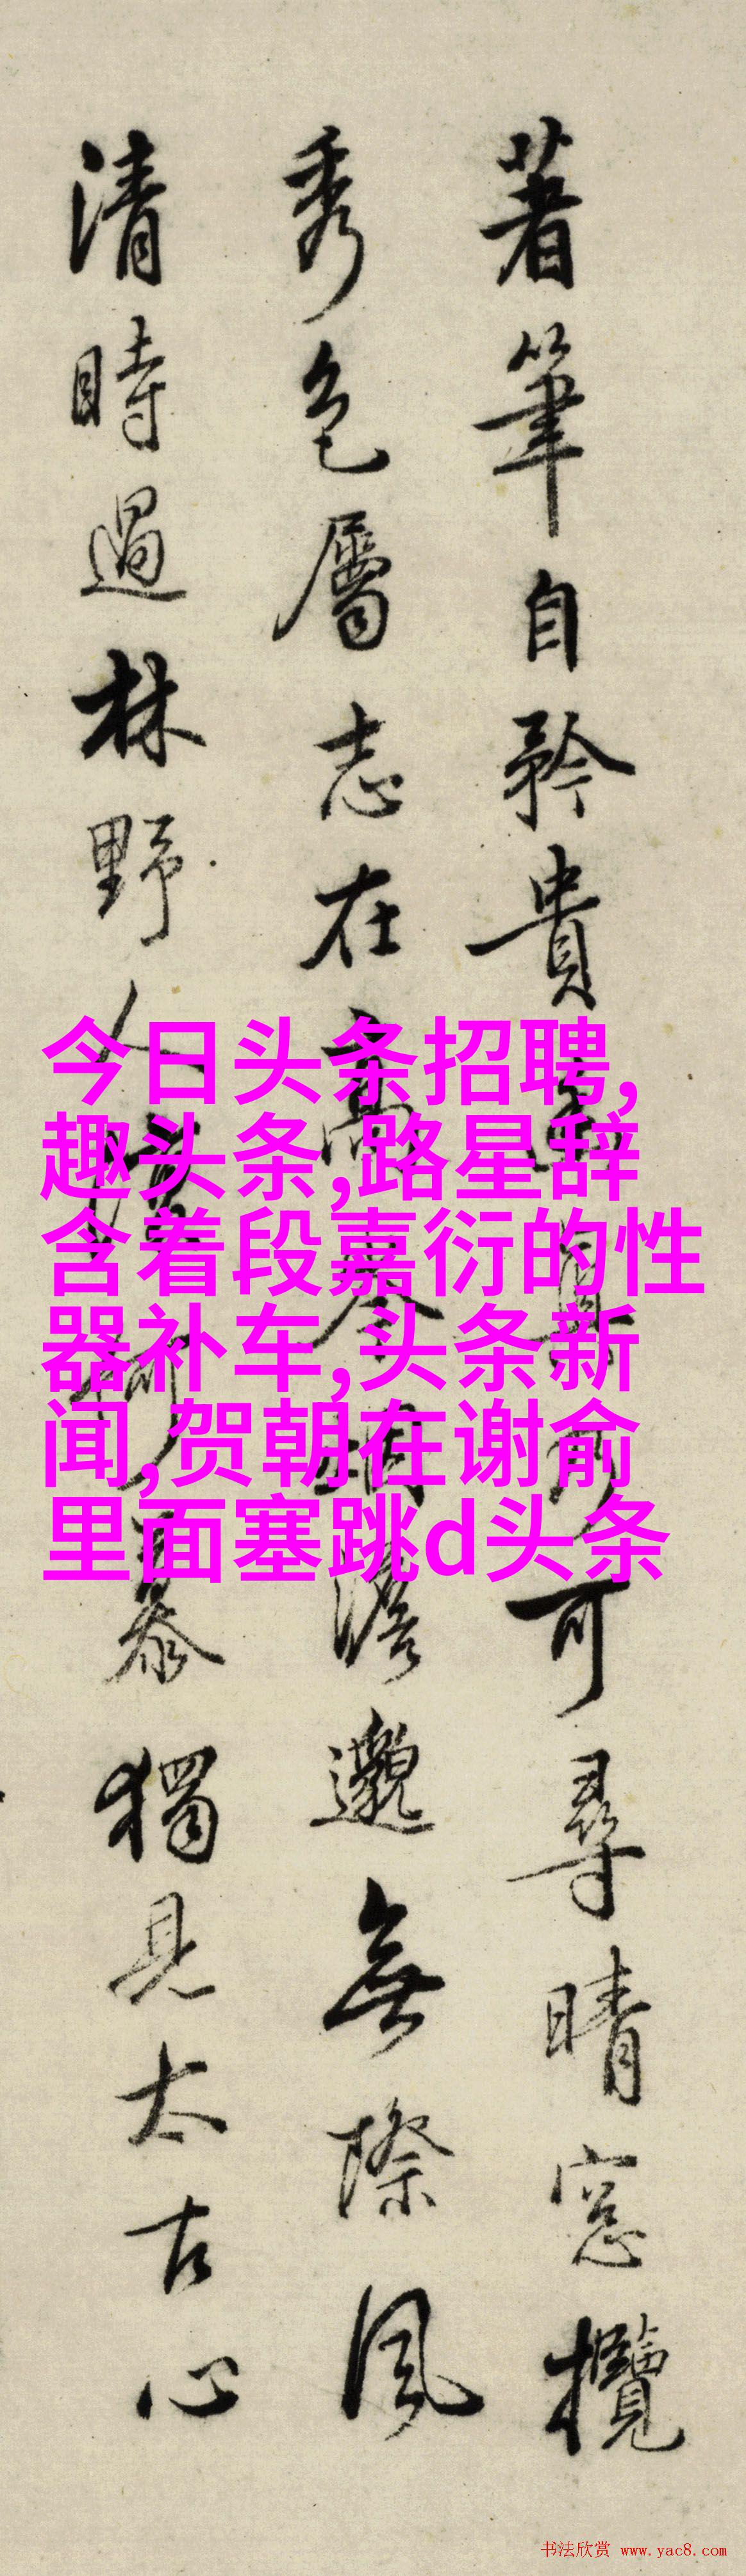 著筆自矜貴可尋晴窓攬
秀色屬志在高岑澹邈無際風
清時過林野人暮獨見太古心
今日头条招聘,
趣头条,路星辞
含着段嘉衍的性
器补车,头条新
闻,贺朝在谢俞
里面塞跳d头条
书法欣赏 www.yac8.com